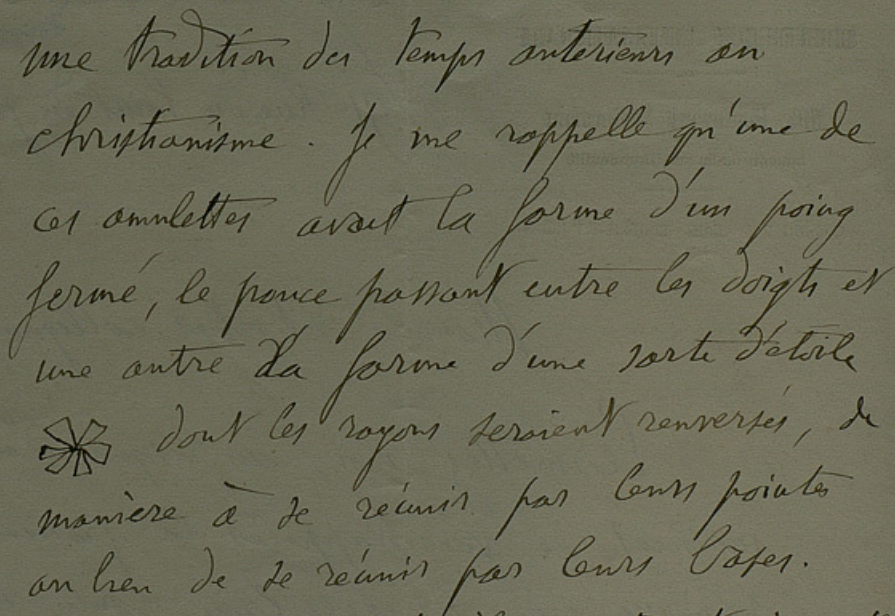 une tradition des temps antérieurs au
christianisme. Je me rappelle qu'une de
ces amulettes avait la forme d'un poing
fermé, le pouce passant entre les doigts et
une autre la forme d'une sorte d'étoile
dont les rayons seraient renversés, de
manière à se réunir par leurs pointes
au lieu de se réunir par leurs bases.